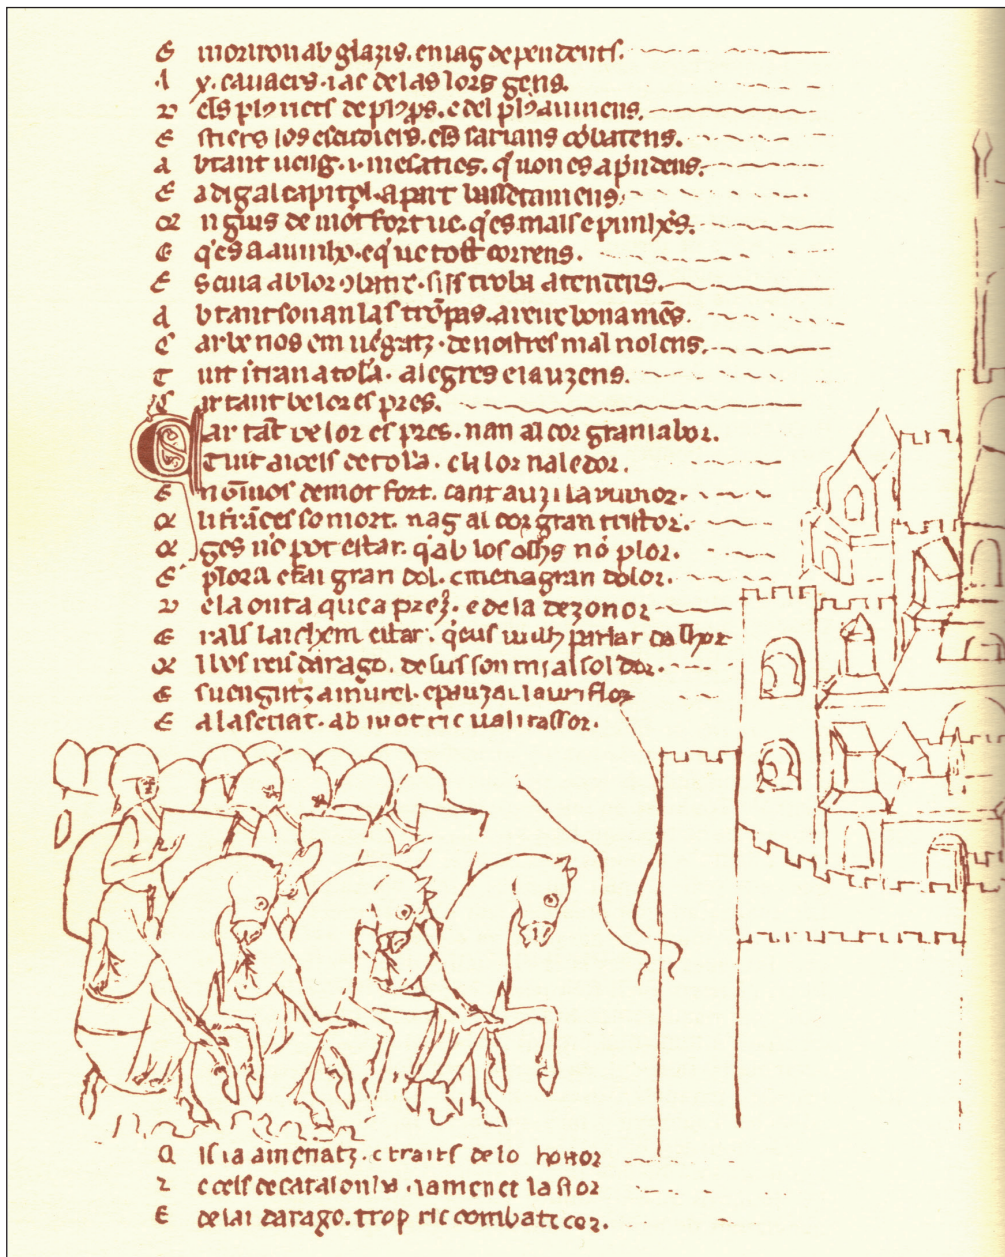 E moriron ab glazis. e niag de pendents.
.l x. cavaers. i ac de las lors gens.
E stiers los escudiers. els sarians cobatens.
A btant ueng .i. mesaties. q uon es aprdens.
E a dig al capitol. a part
Q n guis de mot fort ue. q es mals e punhes.
E q es a auinho. e q ue tost correns.
E s cuia ab lor cbatre. si ls troba atendens.
A btant sonan las tropas. areire bonames.
C ar be nos em uegatz. de nostres mal uolens.
T uit iran a tola. alegres e iauzens.
C ar tant be lor es pres.
Car tat be lor es pres. nan al cor gran iabor.
Tuit aicels de tola. e la lor ualedor.
E n simos de mot fort. cant auzi la rumor.
Q li frances so mort. nag al cor gran tristor.
Q ges no pot estar. q ab los olhs no plor.
E plora e fai gran dol. e mena gran dolor.
D e la onta que a preza. e de la dezonor
E rals laichem estar. q eus uulh parlar da lhor
Q l bos reis darago. de sus son misalsoldor.
E s uengutz a murel. e pauza i la uriflor
E a la setiat. ab mot ric ualuassor.
Q ls i a amenatz. e traits de lo honor
D e cels de catalonha. i amenet la flor
E de lai darago. trop ric combatedor.